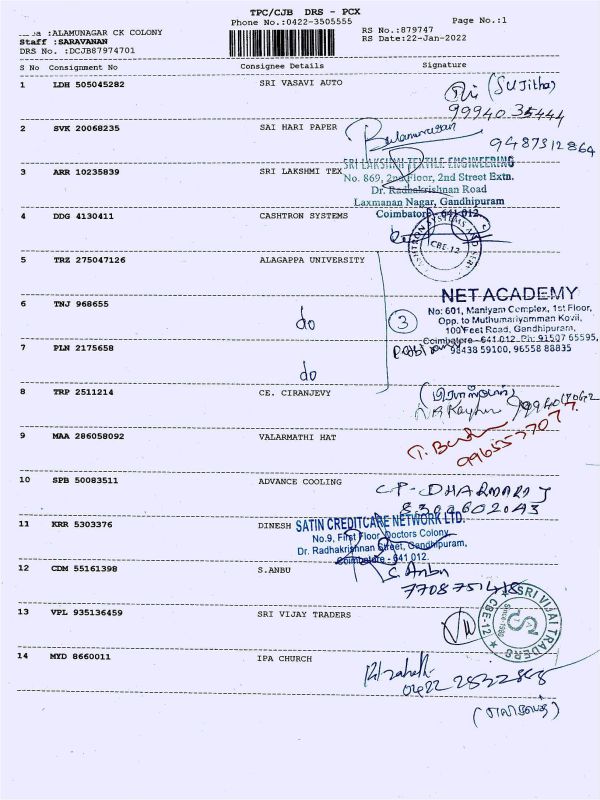 TPC/CJB DRS - PCX
Phone No.:0422-3505555
Page No.:1
:ALAMUNAGAR CK COLONY
Staff :SARAVANAN
DRS No. :DCJB87974701
RS No.:879747
RS Date:22-Jan-2022
S No Consignment No Consignee Details Signature
1 LDH 505045282 SRI VASAVI AUTO
(Sujitha)
99940 35444
2 SVK 20068235 SAI HARI PAPER
Balamurugan
9487312864
3 ARR 10235839 SRI LAKSHMI TEX
SRI LAKSHMI TEXTILE ENGINEERING
No. 869, 2nd Floor, 2nd Street Extn.
Dr. Radhakrishnan Road
Laxmanan Nagar, Gandhipuram
Coimbatore - 641 012.
4 DDG 4130411 CASHTRON SYSTEMS
CBE-12
5 TRZ 275047126 ALAGAPPA UNIVERSITY
6 TNJ 968655
do
3
NET ACADEMY
No: 601, Maniyam Complex, 1st Floor,
Opp. to Muthumariyamman Kovil,
100 Feet Road, Gandhipuram,
Coimbatore - 641 012. Ph: 91507 65595,
98438 59100, 96558 88835
7 PLN 2175658
do
8 TRP 2511214 CE. CIRANJEVY
9 MAA 286058092 VALARMATHI HAT
9965577077
10 SPB 50083511 ADVANCE COOLING
C.P. DHARMARAJ
11 KRR 5303376 DINESH
SATIN CREDITCARE NETWORK LTD.
No.9, First Floor, Doctors Colony,
Dr. Radhakrishnan Street, Gandhipuram,
Coimbatore - 641 012.
12 CDM 55161398 S.ANBU
S. Anbu
13 VPL 935136459 SRI VIJAY TRADERS
SRI VIJAI TRADERS
CBE-12
14 MYD 8660011 IPA CHURCH
0422 2532868